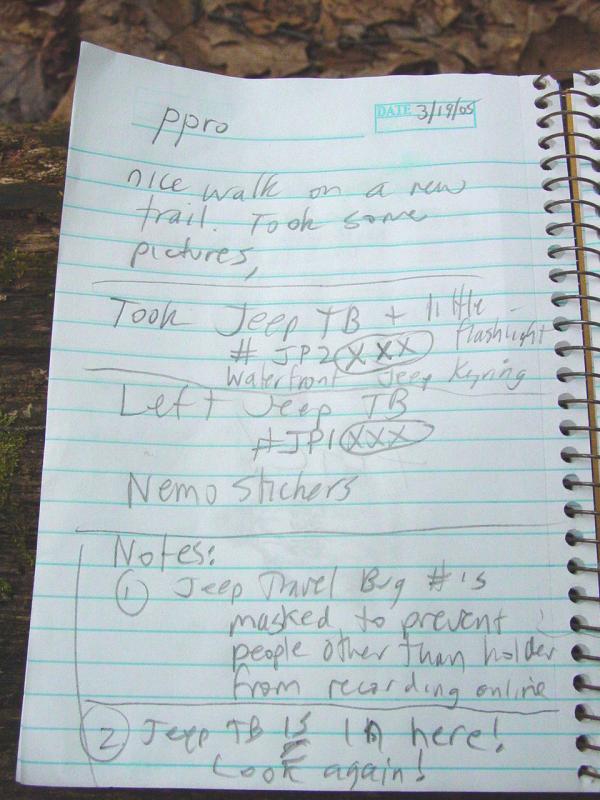 ppro
DATE 3/19/05
nice walk on a new
trail. Took some
pictures,
Took Jeep TB + little
flashlight
# JP2 XXX
Waterfront Jeep Keyring
Left Jeep TB
#JP1 XXX
Nemo Stickers
Notes:
1 Jeep Travel Bug #is
masked to prevent
people other than holder
from recording online
2 Jeep TB is in here!
Look again!